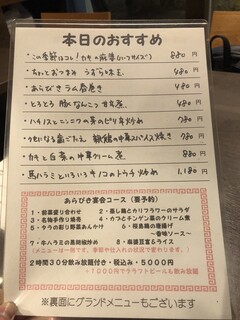 本日のおすすめ
この季節はコレ！カキの麻婆(ハーフサイズ) 880円
ちょいとおつまみ うずら味玉 480円
あらびきラム春巻き 480円
とろとろ 豚なんこつ 480円
ハチノスとニンニクの芽のピリ辛炒め
中華スパイス焼き
カキと白菜の中華クリーム煮 880円
馬ハラミといろいろキノコのトウチ炒め 1,180円
あらびき宴会コース（要予約）
1・前菜盛り合わせ 2・蒸し鶏とカリフラワーのサラダ
3・名物手作り焼売 4・カワハギンゲン菜のクリーム煮
5・タラの彩り野菜あんかけ 6・桜島鶏の唐揚げ
～香味ソース～
7・牛ハラミの黒胡椒炒め 8・麻婆豆腐＆ライス
2時間30分飲み放題付き・税込み・5000円
+1000円でクラフトビールも飲み放題
※裏面にグランドメニューもございます